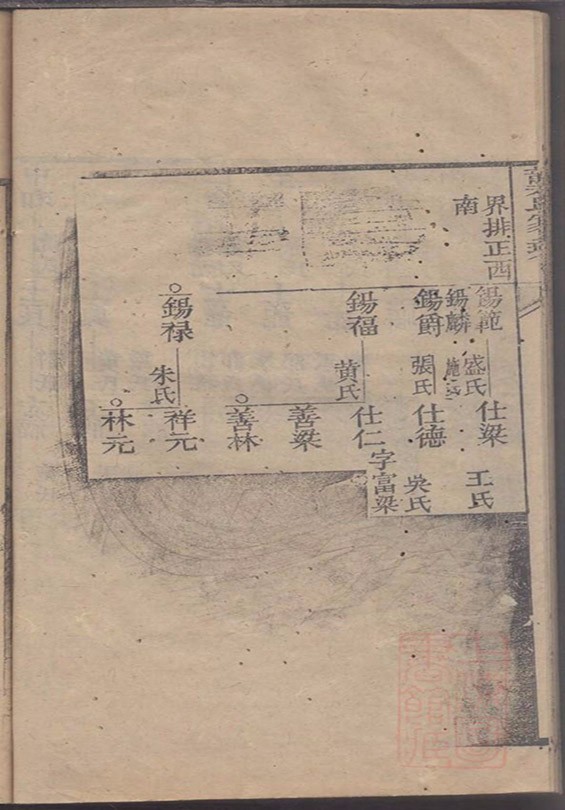 界排正西
南
錫範
盛氏
仕梁
王氏
錫麟
錫爵
張氏
仕德
吳氏
錫福
黃氏
仕仁字富梁
善梁
善林
錫禄
朱氏
祥元
林元